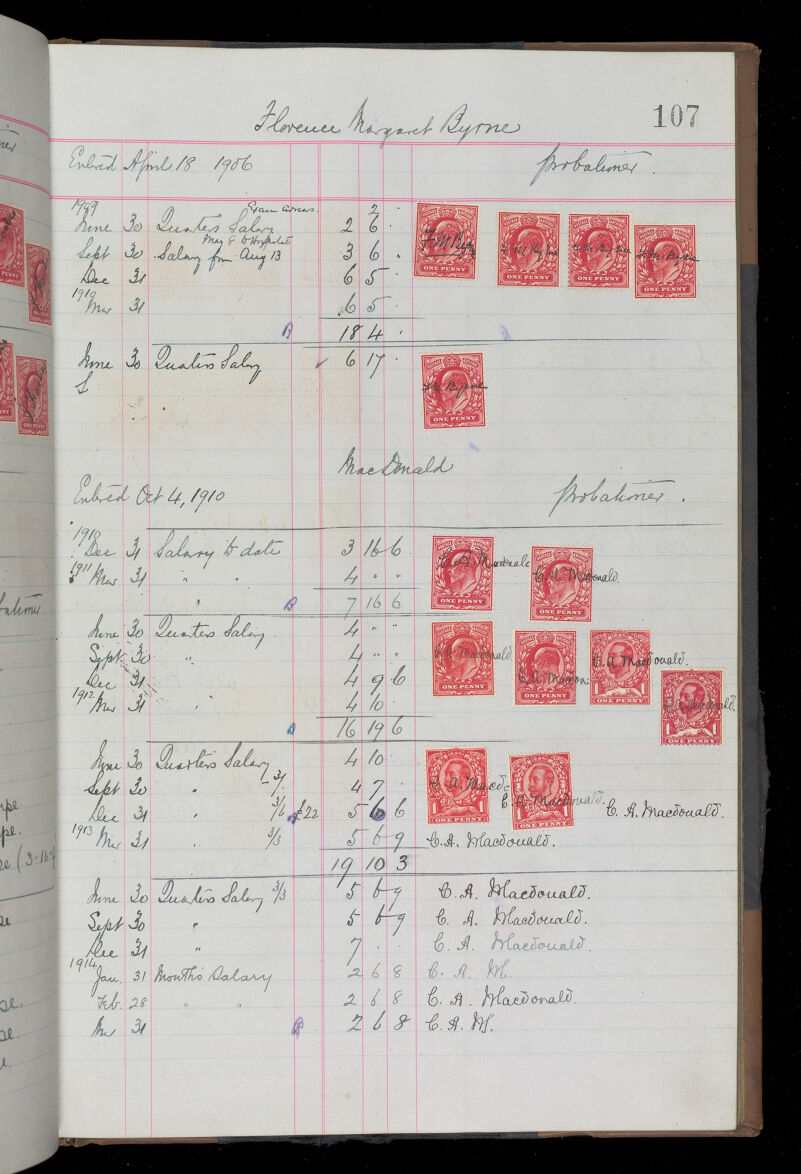 107
Florence Margaret Byrne
Entered April 18 1906 Probationer.
1909 Exam 2
June 30 Quarters Salary 2 6 F M Byrne
May 8 to Hospital
Sept 30 Salary from Aug 13 3 6 "
Dec 31 6 5 .
1910
Mar 31 6 5 .
A 18 4 .
ONE PENNY ONE PENNY ONE PENNY ONE PENNY
June 30 Quarters Salary ✓ 6 17 . F. M. Byrne
S
ONE PENNY
MacDonald
Entered Oct 4, 1910 Probationer.
1910
Dec 31 Salary to date 3 16 6 C. A. Macdonald
1911 Mar 31 " " 4 " " C. A. Macdonald.
ONE PENNY ONE PENNY
" 7 16 6
June 30 Quarters Salary 4 " " C. A. Macdonald.
Sept 30 " 4 " " C. A. Macdonald.
Dec 31 4 9 6 C. A. Macdonald.
1912
Mar 31 4 10 C. A. Macdonald.
ONE PENNY ONE PENNY 1 1 1 1
16 19 6
June 30 Quarters Salary 4 10
Sept 30 " 3/- 4 7 . C. A. Macd
Dec 31 " 3/6 £22 5 6 6 C. A. Macdonald. C. A. Macdonald.
1 1 1 1
1913
Mar 31 " 3/3 5 6 9 C. A. Macdonald.
19 10 3
June 30 Quarters Salary 3/3 5 6 9 C. A. Macdonald.
Sept 30 " 5 6 9 C. A. Macdonald.
Dec 31 " 7 . . C. A. Macdonald.
1914
Jan. 31 Month's Salary 2 6 8 C. A. M.
Feb. 28 " " 2 6 8 C. A. Macdonald.
Mar 31 2 6 8 C. A. M.